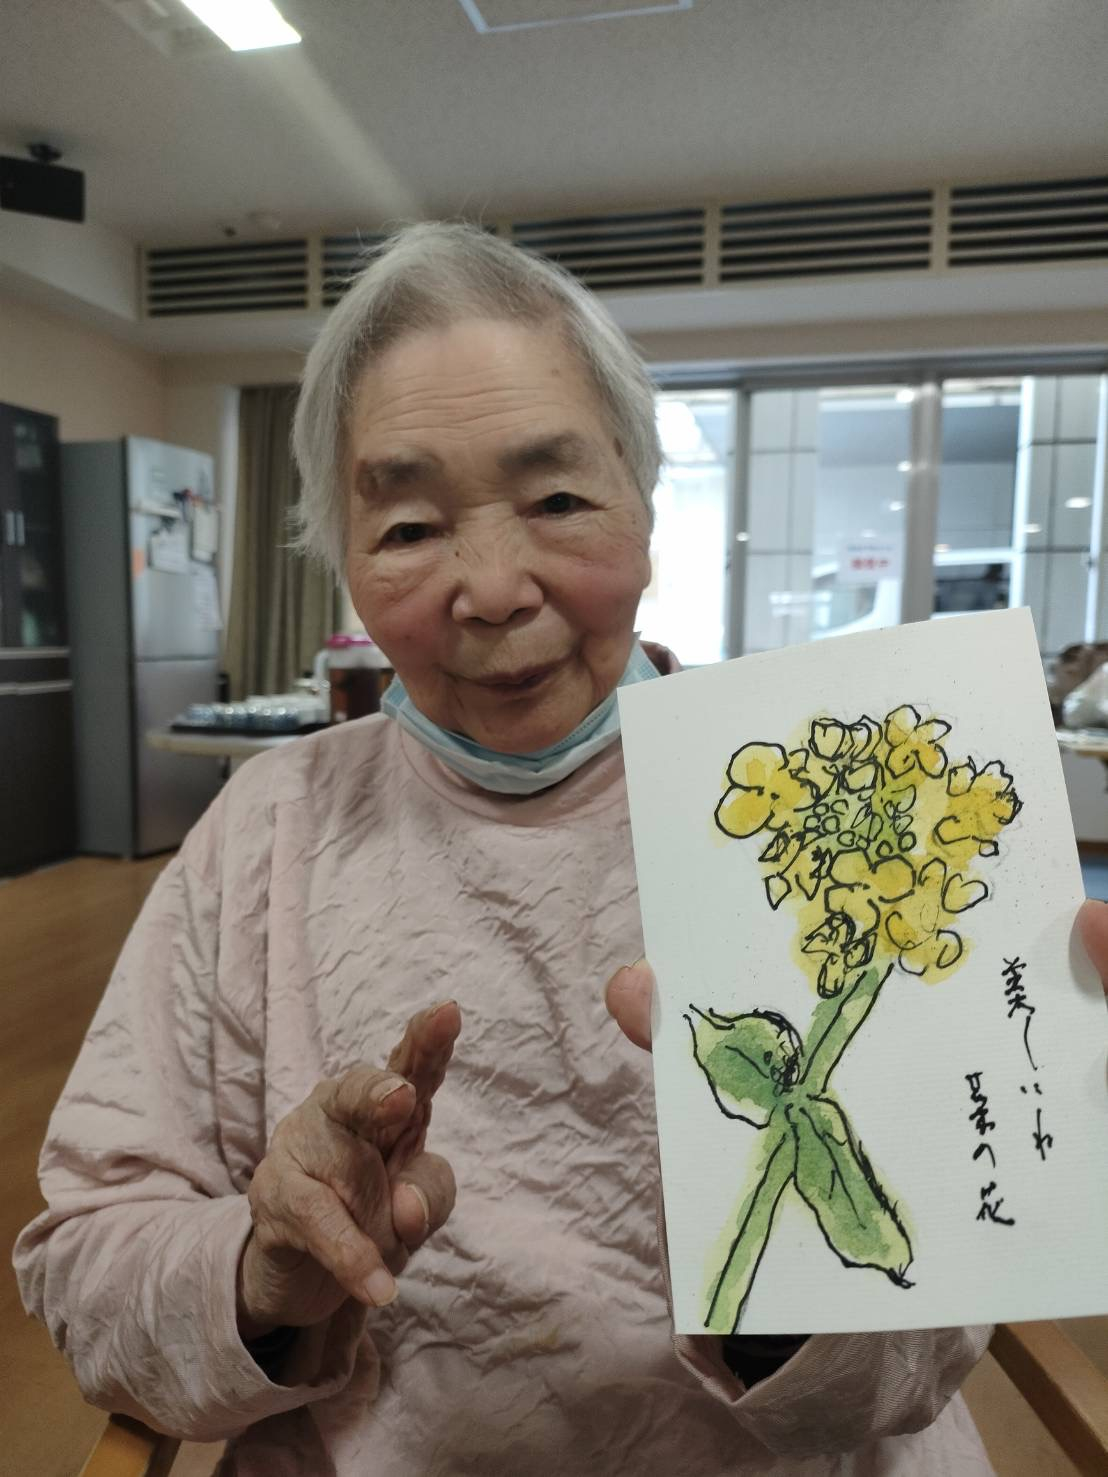 美しいね
菜の花